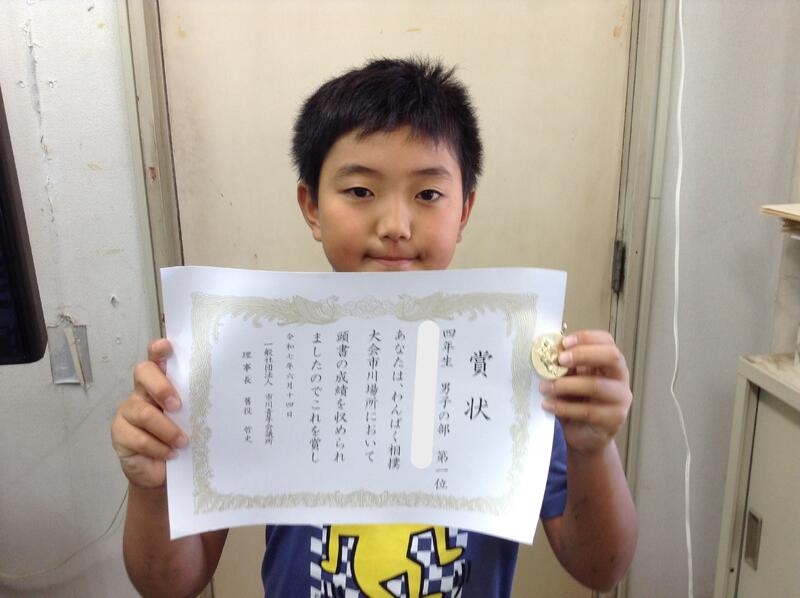 賞状
四年生 男子の部 第一位
あなたは、わんぱく相撲
大会市川場所において
頭書の成績を収められ
ましたのでこれを賞し
令和七年六月十四日
一般社団法人 市川青年会議所
理事長 舊役 哲史